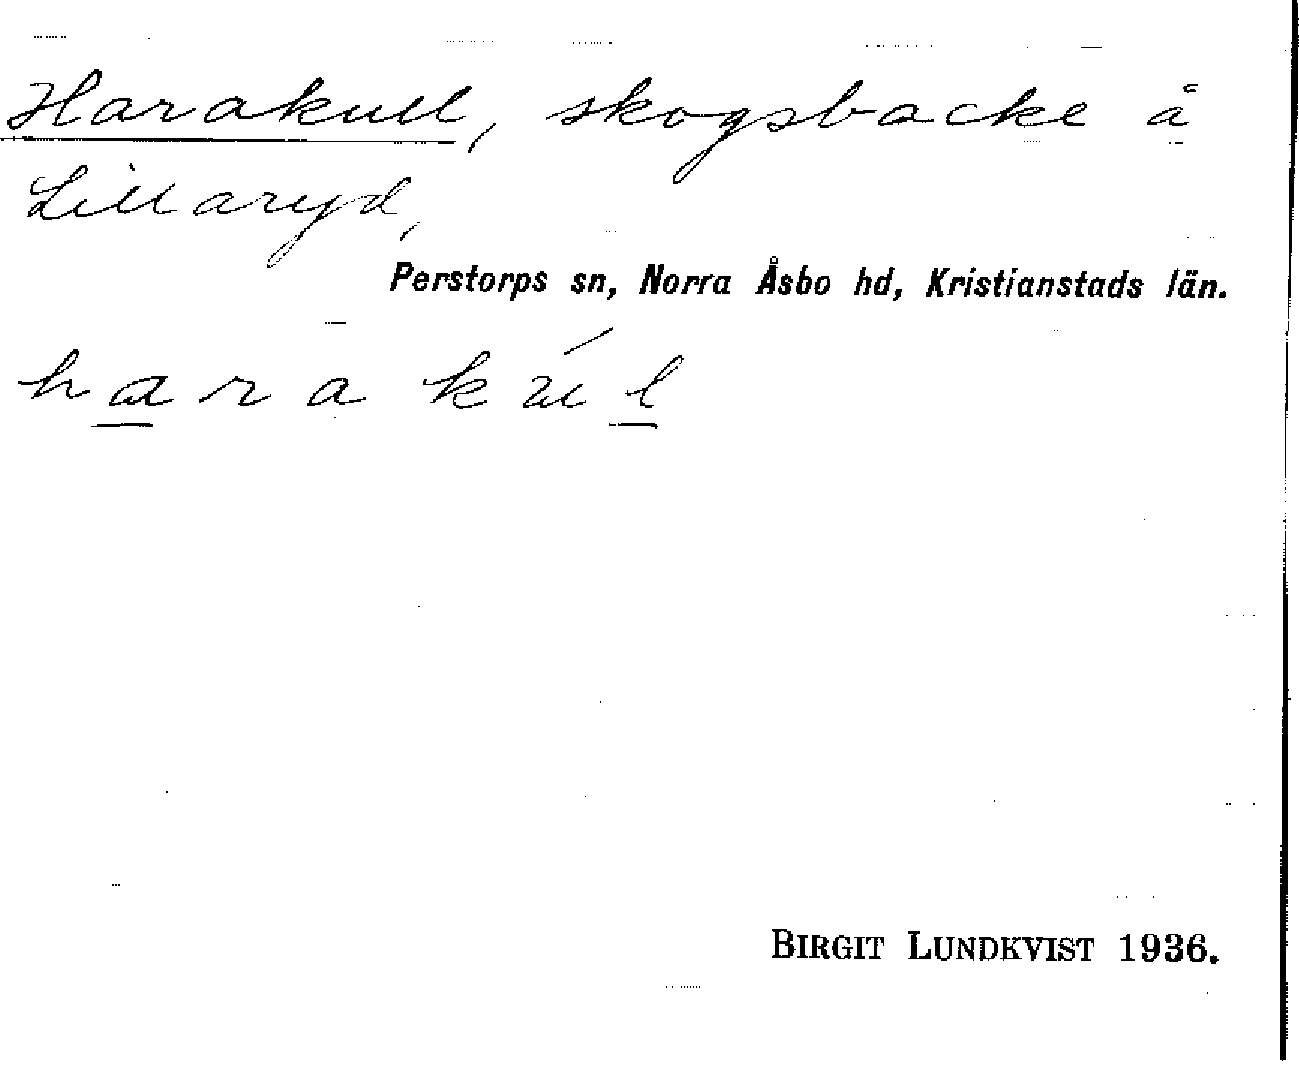 Harakull, skogsbacke å
Lillaryd,
Perstorps sn, Norra Åsbo hd, Kristianstads län.
h a r a k ú l
BIRGIT LUNDKVIST 1936.